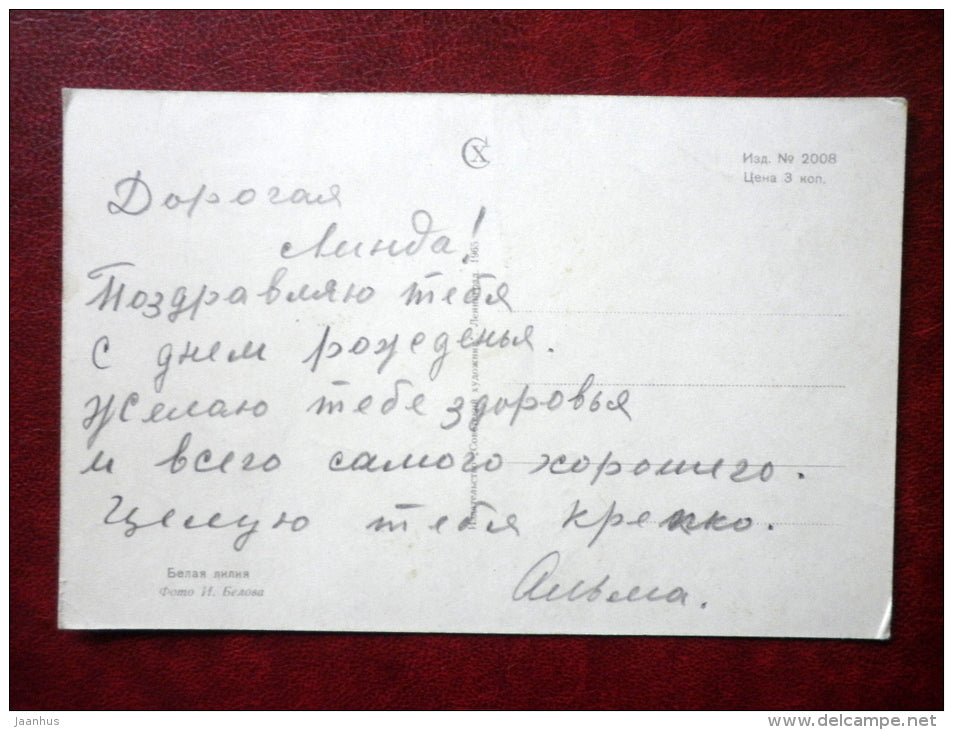 Изд. № 2008
Цена 3 коп.
Дорогая
Линда!
Поздравляю тебя
с днем рожеденья.
Желаю тебе здоровья
и всего самого хорошего.
Целую тебя крепко.
Альма.
Издательство „Советский художник“. Ленинград. 1965
Белая лилия
Фото И. Белова
jaanhus
www.delcampe.net